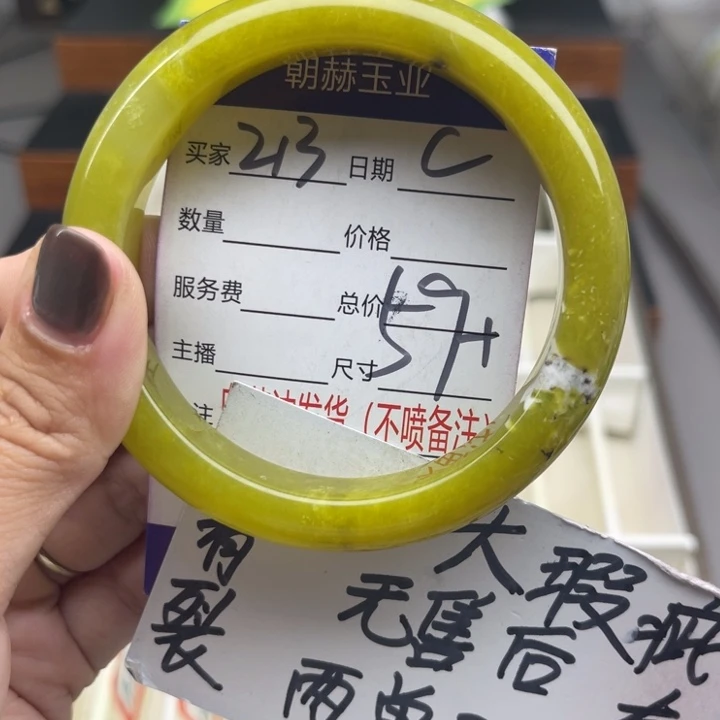 朝赫玉业
买家 213 日期 C
数量 价格
服务费 总价
主播 尺寸 59+
注 发货（不喷备注）
有 大瑕疵
裂 无售后
两